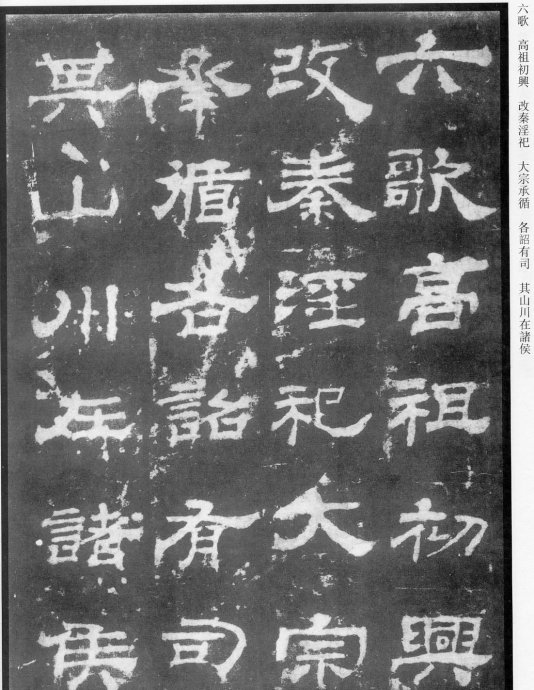 六歌高祖初興
改秦淫祀大宗
承循各詔有司
其山川在諸侯
六歌 高祖初興 改秦淫祀 大宗承循 各詔有司 其山川在諸侯